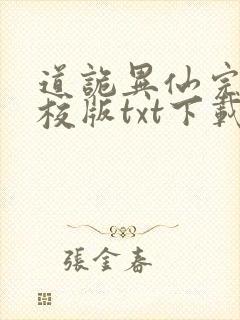 道詭異仙完
校版txt下載
張金春